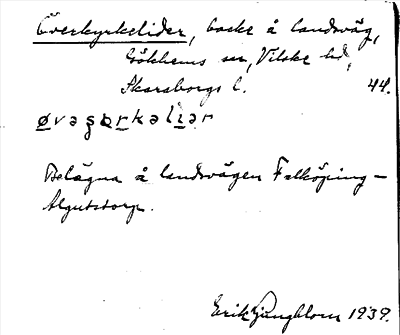 Överkyrkelider, backe å landsväg,
Gökhems sn, Vilske hd,
Skaraborgs l. 44.
Belägna å landsvägen Falköping –
Algutstorp.
Erik Ljungblom 1939.